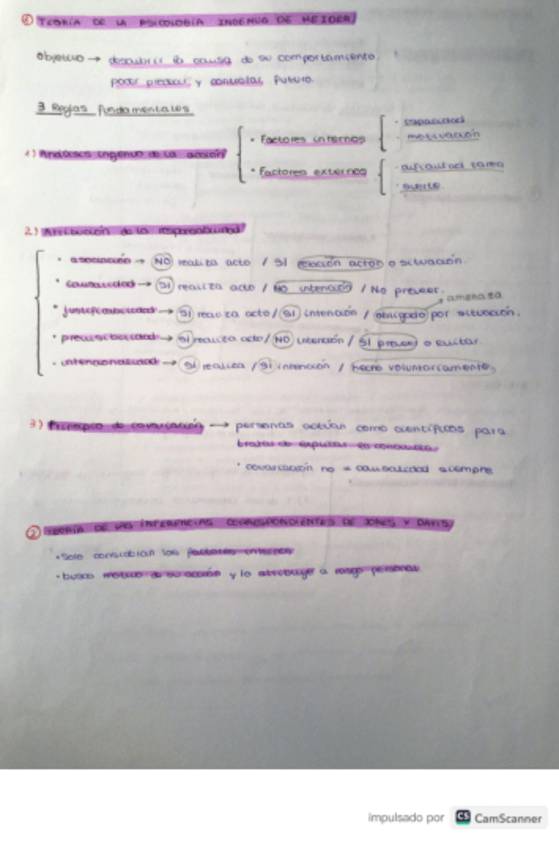 ① TEORÍA DE LA PSICOLOGÍA INGENUA DE HEIDER
Objetivo → descubrir la causa de su comportamiento.
poder predecir y controlar futuro.
3 Reglas fundamentales
1) Análisis ingenuo de la acción
• Factores internos
- capacidad
- motivación
• Factores externos
- dificultad tarea
- suerte
2) Atribución de la responsabilidad
• asociación → NO realiza acto / SÍ relación actor o situación.
• causalidad → SÍ realiza acto / No intención / No prevee.
amenaza
• justificabilidad → SÍ realiza acto / SÍ intención / obligado por situación.
• previsibilidad → SÍ realiza acto / NO intención / SÍ prever o evitar.
• intencionalidad → SÍ realiza / SÍ intención / hecho voluntariamente.
3) Principio de covariación → personas actúan como científicos para
tratar de explicar la conducta.
• covariación no = causalidad siempre
② TEORÍA DE LAS INFERENCIAS CORRESPONDIENTES DE JONES Y DAVIS
• Solo consideran los factores internos
• busca motivo de su acción y lo atribuye a rasgo personal
impulsado por CS CamScanner